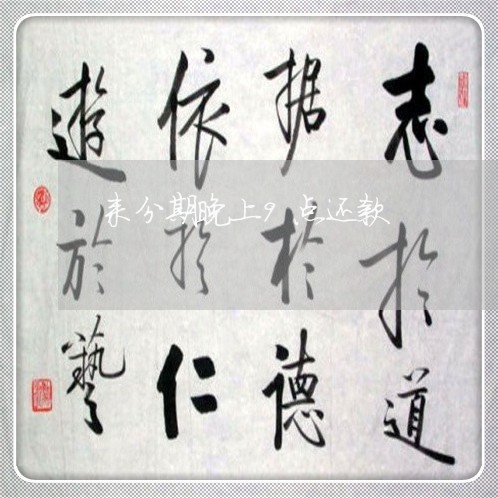 志於道
据於德
依於仁
遊於藝
来分期晚上9点还款